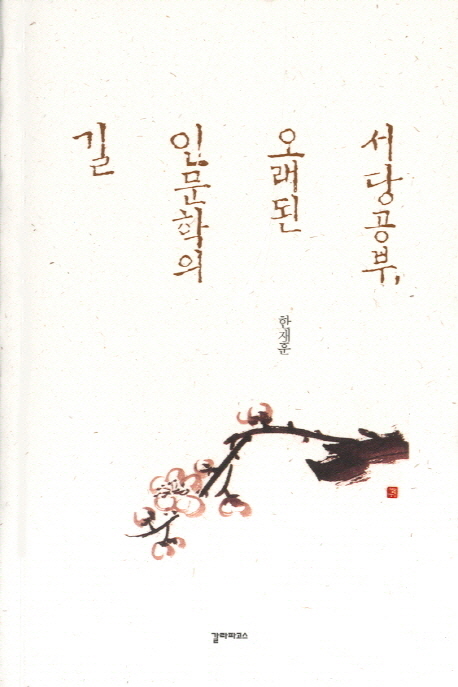 서당공부,
오래된
인문학의
길
한재훈
갈라파고스